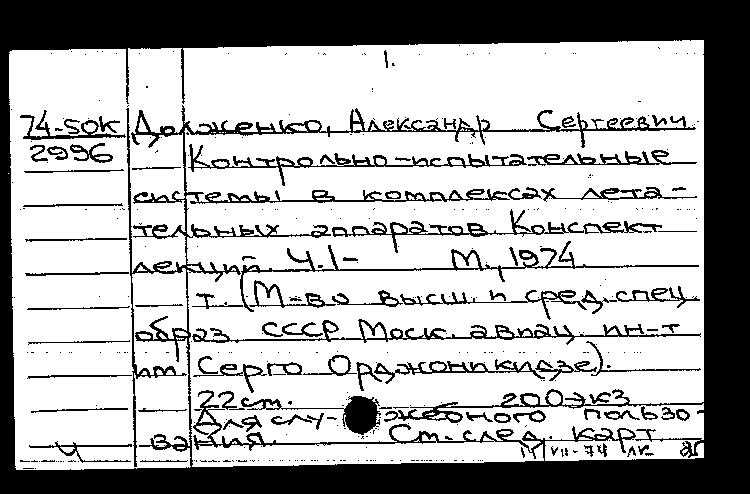 1.
74-50К Долженко, Александр Сергеевич
2996 Контрольно-испытательные
системы в комплексах лета-
тельных аппаратов. Конспект
лекций. Ч.1- М., 1974
т. (М-во высш. и сред. спец.
образ. СССР. Моск. авиац. ин-т
им. Серго Орджоникидзе).
22 см. 200 экз.
Для слу- жебного пользо-
ч вания. См. след. карт.
VII-74